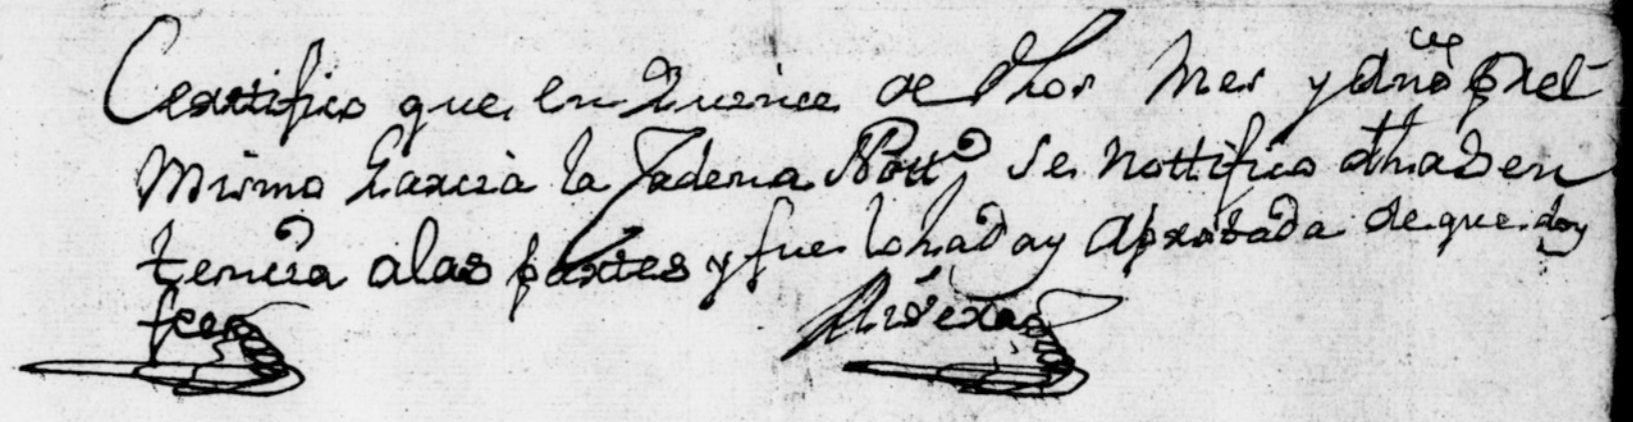 Certifico que en Quince de dhos Mes y Año por el
Mismo Garcia la Jadena Nott.º Se Nottifico dha Sen
tencia alas partes y fue lohada y Aprobada de que doy
fee